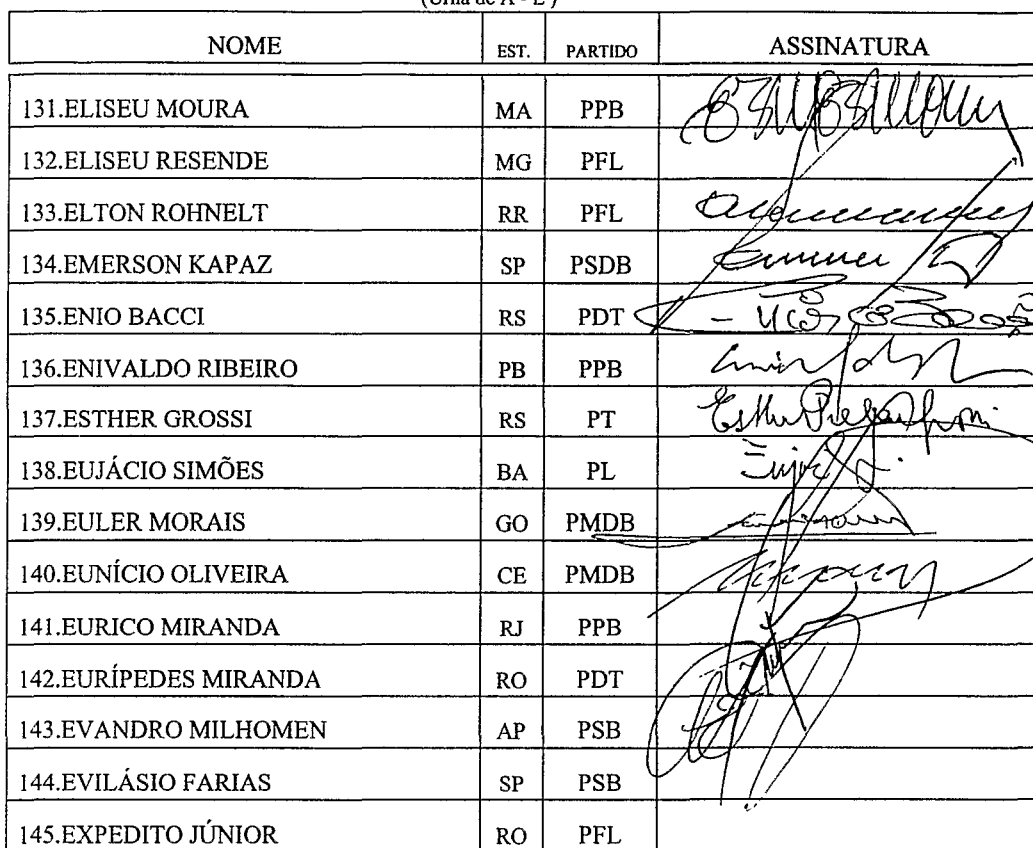 (Urna de A - E )
NOME EST. PARTIDO ASSINATURA
131.ELISEU MOURA MA PPB
132.ELISEU RESENDE MG PFL
133.ELTON ROHNELT RR PFL
134.EMERSON KAPAZ SP PSDB
135.ENIO BACCI RS PDT
136.ENIVALDO RIBEIRO PB PPB
137.ESTHER GROSSI RS PT Esther
138.EUJÁCIO SIMÕES BA PL
139.EULER MORAIS GO PMDB
140.EUNÍCIO OLIVEIRA CE PMDB
141.EURICO MIRANDA RJ PPB
142.EURÍPEDES MIRANDA RO PDT
143.EVANDRO MILHOMEN AP PSB
144.EVILÁSIO FARIAS SP PSB
145.EXPEDITO JÚNIOR RO PFL